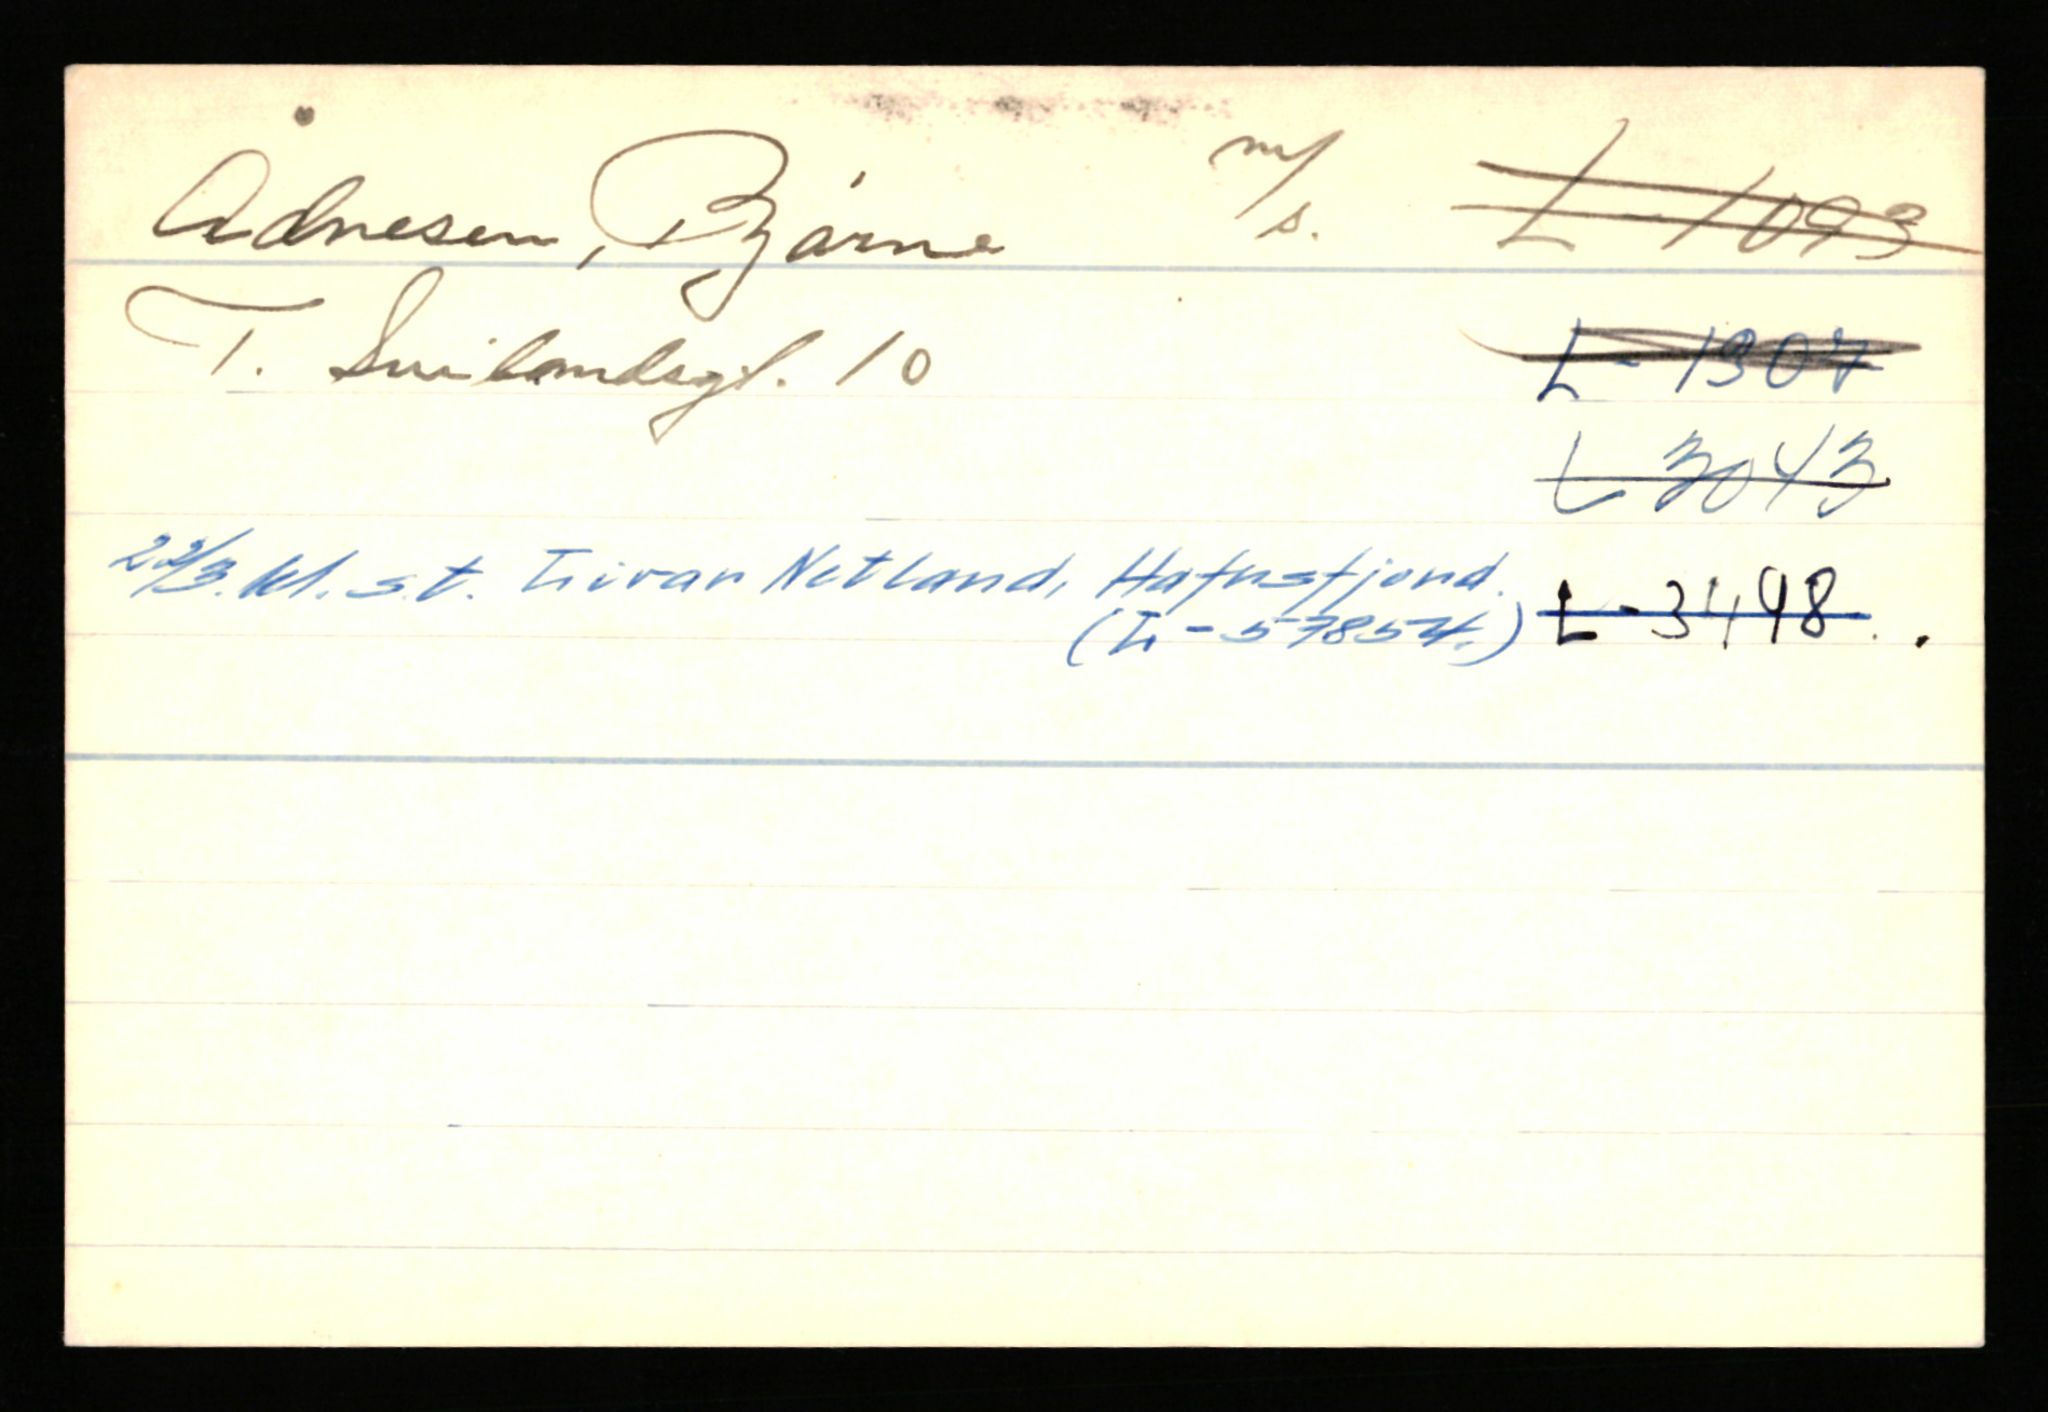 Ådnesen, Bjarne m/s. L-1093
T. Svilandsgt. 10 L-1307
L 3043
22/3. kl. s.t. Livar Netland, Hafrsfjord. L-3498..
(L-57854.)